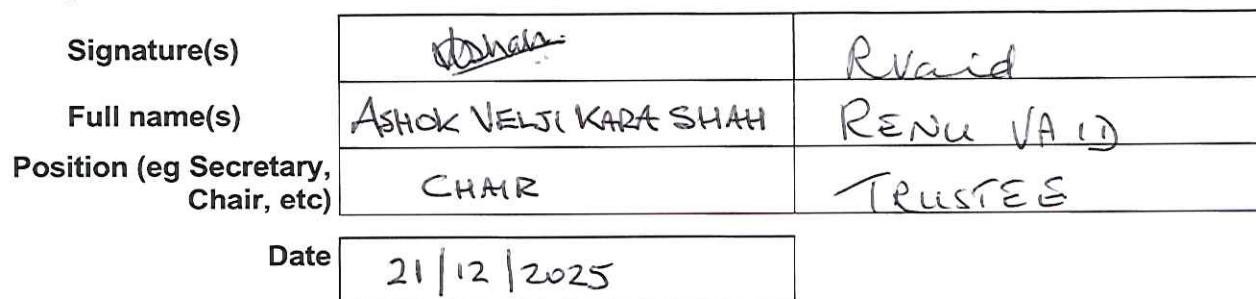 Signature(s) Ashah RVaid
Full name(s) ASHOK VELJI KARA SHAH RENU VAID
Position (eg Secretary, Chair, etc) CHAIR TRUSTEE
Date 21/12/2025